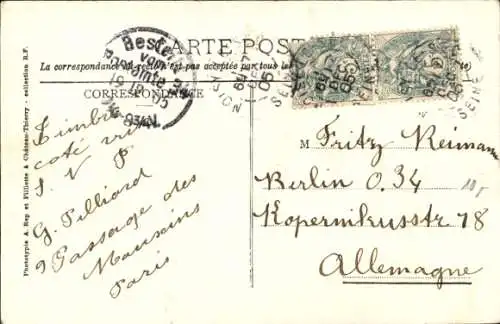 CARTE POSTALE
La correspondance au recto n'est pas acceptée par tous les
CORRESPONDANCE
Bestellt
vom
Postamte
19 12 05
8¾N.
SEINE
05
Timbre
coté vue
S. V. P.
G. Pilliard
9 Passage des
Mauxins
Paris
M Fritz Reimann
Berlin O.34
Kopernikusstr 18
Allemagne
Phototypie A. Rep et Filliette à Château-Thierry - collection R.F.